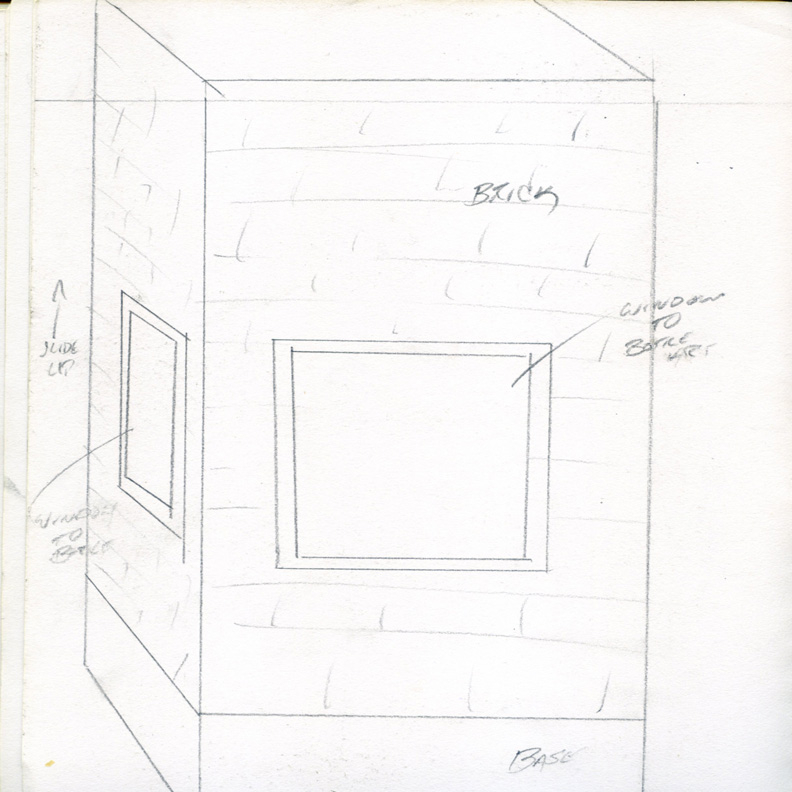 BRICK
WINDOW
TO
BOTTLE
ART
SLIDE
UP
WINDOW
TO
BOTTLE
BASE